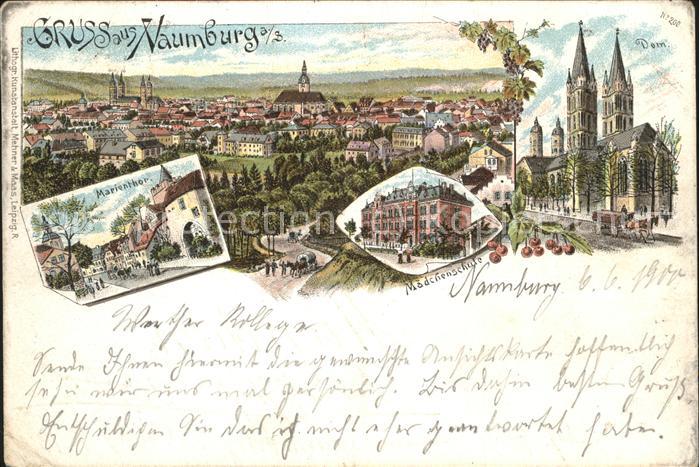 GRUSS aus Naumburg a/S.
No 200
Dom.
Lithogr. Kunstanstalt, Mehner & Maas, Leipzig, R.
Marienthor.
Mädchenschule
Naumburg 6. 6. 1900
Werther Kollege.
Sende Ihnen hiermit die gewünschte Ansichtskarte hoffentlich
sehn wir uns mal persönlich. Bis dahin besten Gruß
Entschuldigen Sie das ich nicht eher geantwortet habe.